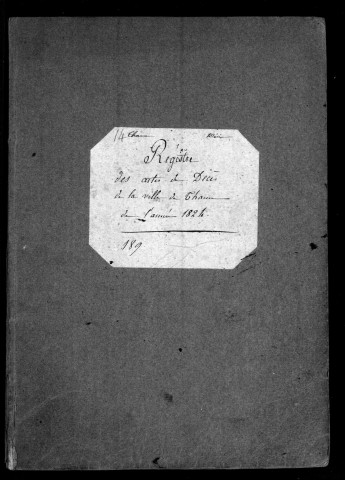 Régistre
des actes de Décès
de la ville de Thann
de l'année 1824
189